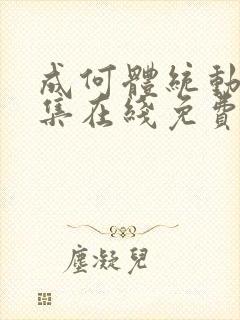 成何體統動
集在綫免費
塵凝兒